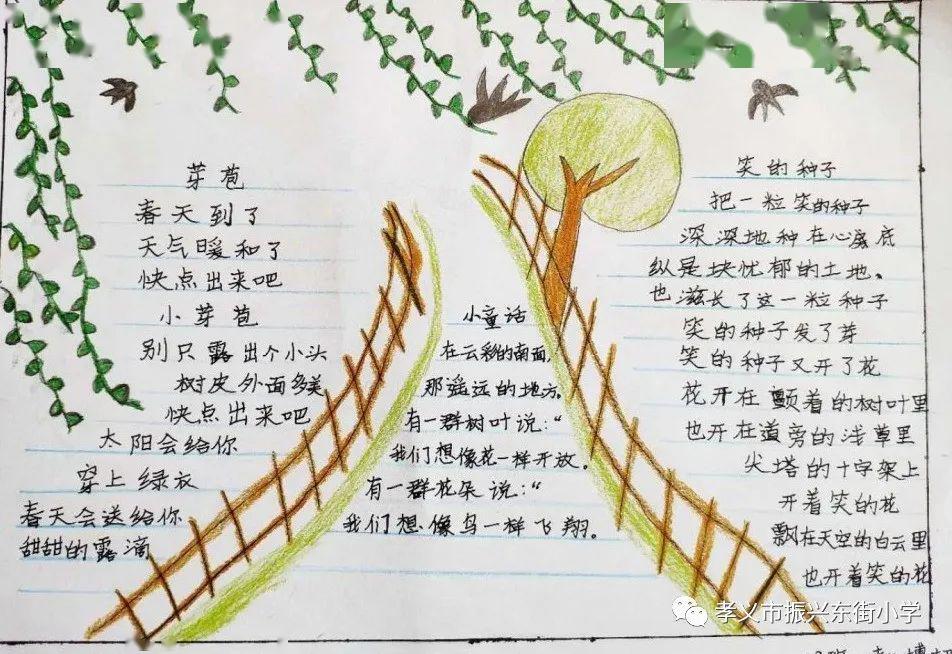 芽苞
春天到了
天气暖和了
快点出来吧
小芽苞
别只露出个小头
树皮外面多美
快点出来吧
太阳会给你
穿上绿衣
春天会送给你
甜甜的露滴
小童话
在云彩的南面,
那遥远的地方。
有一群树叶说:“
我们想像花一样开放。
有一群花朵说:“
我们想像鸟一样飞翔。
笑的种子
把一粒笑的种子
深深地种在心底
纵是块忧郁的土地。
也滋长了这一粒种子
笑的种子发了芽
笑的种子又开了花
花开在颤着的树叶里
也开在道旁的浅草里
尖塔的十字架上
开着笑的花
飘在天空的白云里
也开着笑的花
孝义市振兴东街小学